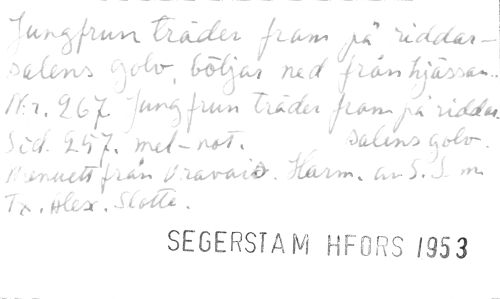 Jungfrun träder fram på riddar-
salens golv, böljar ned från hjässan..
Nr. 267 Jungfrun träder fram på riddar
Sid. 257. mel-not. salens golv.
Menuett från Oravais. Harm. av S. S. m
Tx. Alex. Slotte.
SEGERSTAM HFORS 1953